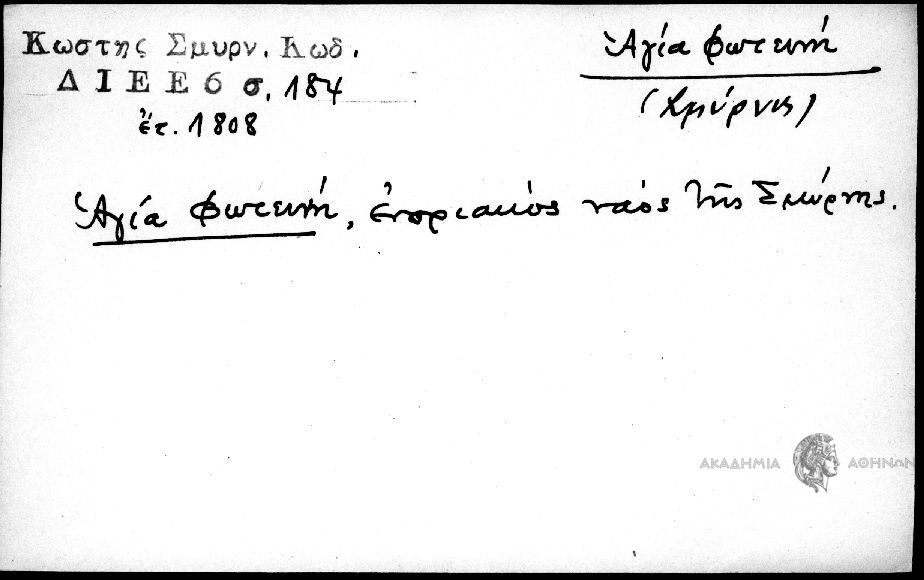 Κωστης Σμυρν. Κωδ.
Δ Ι Ε Ε 6 σ. 184
ἔτ. 1808
Ἁγία Φωτεινή
(Σμύρνης)
Ἁγία Φωτεινή, ἐνοριακὸς ναὸς τῆς Σμύρνης.
ΑΚΑΔΗΜΙΑ ΑΘΗΝΩΝ